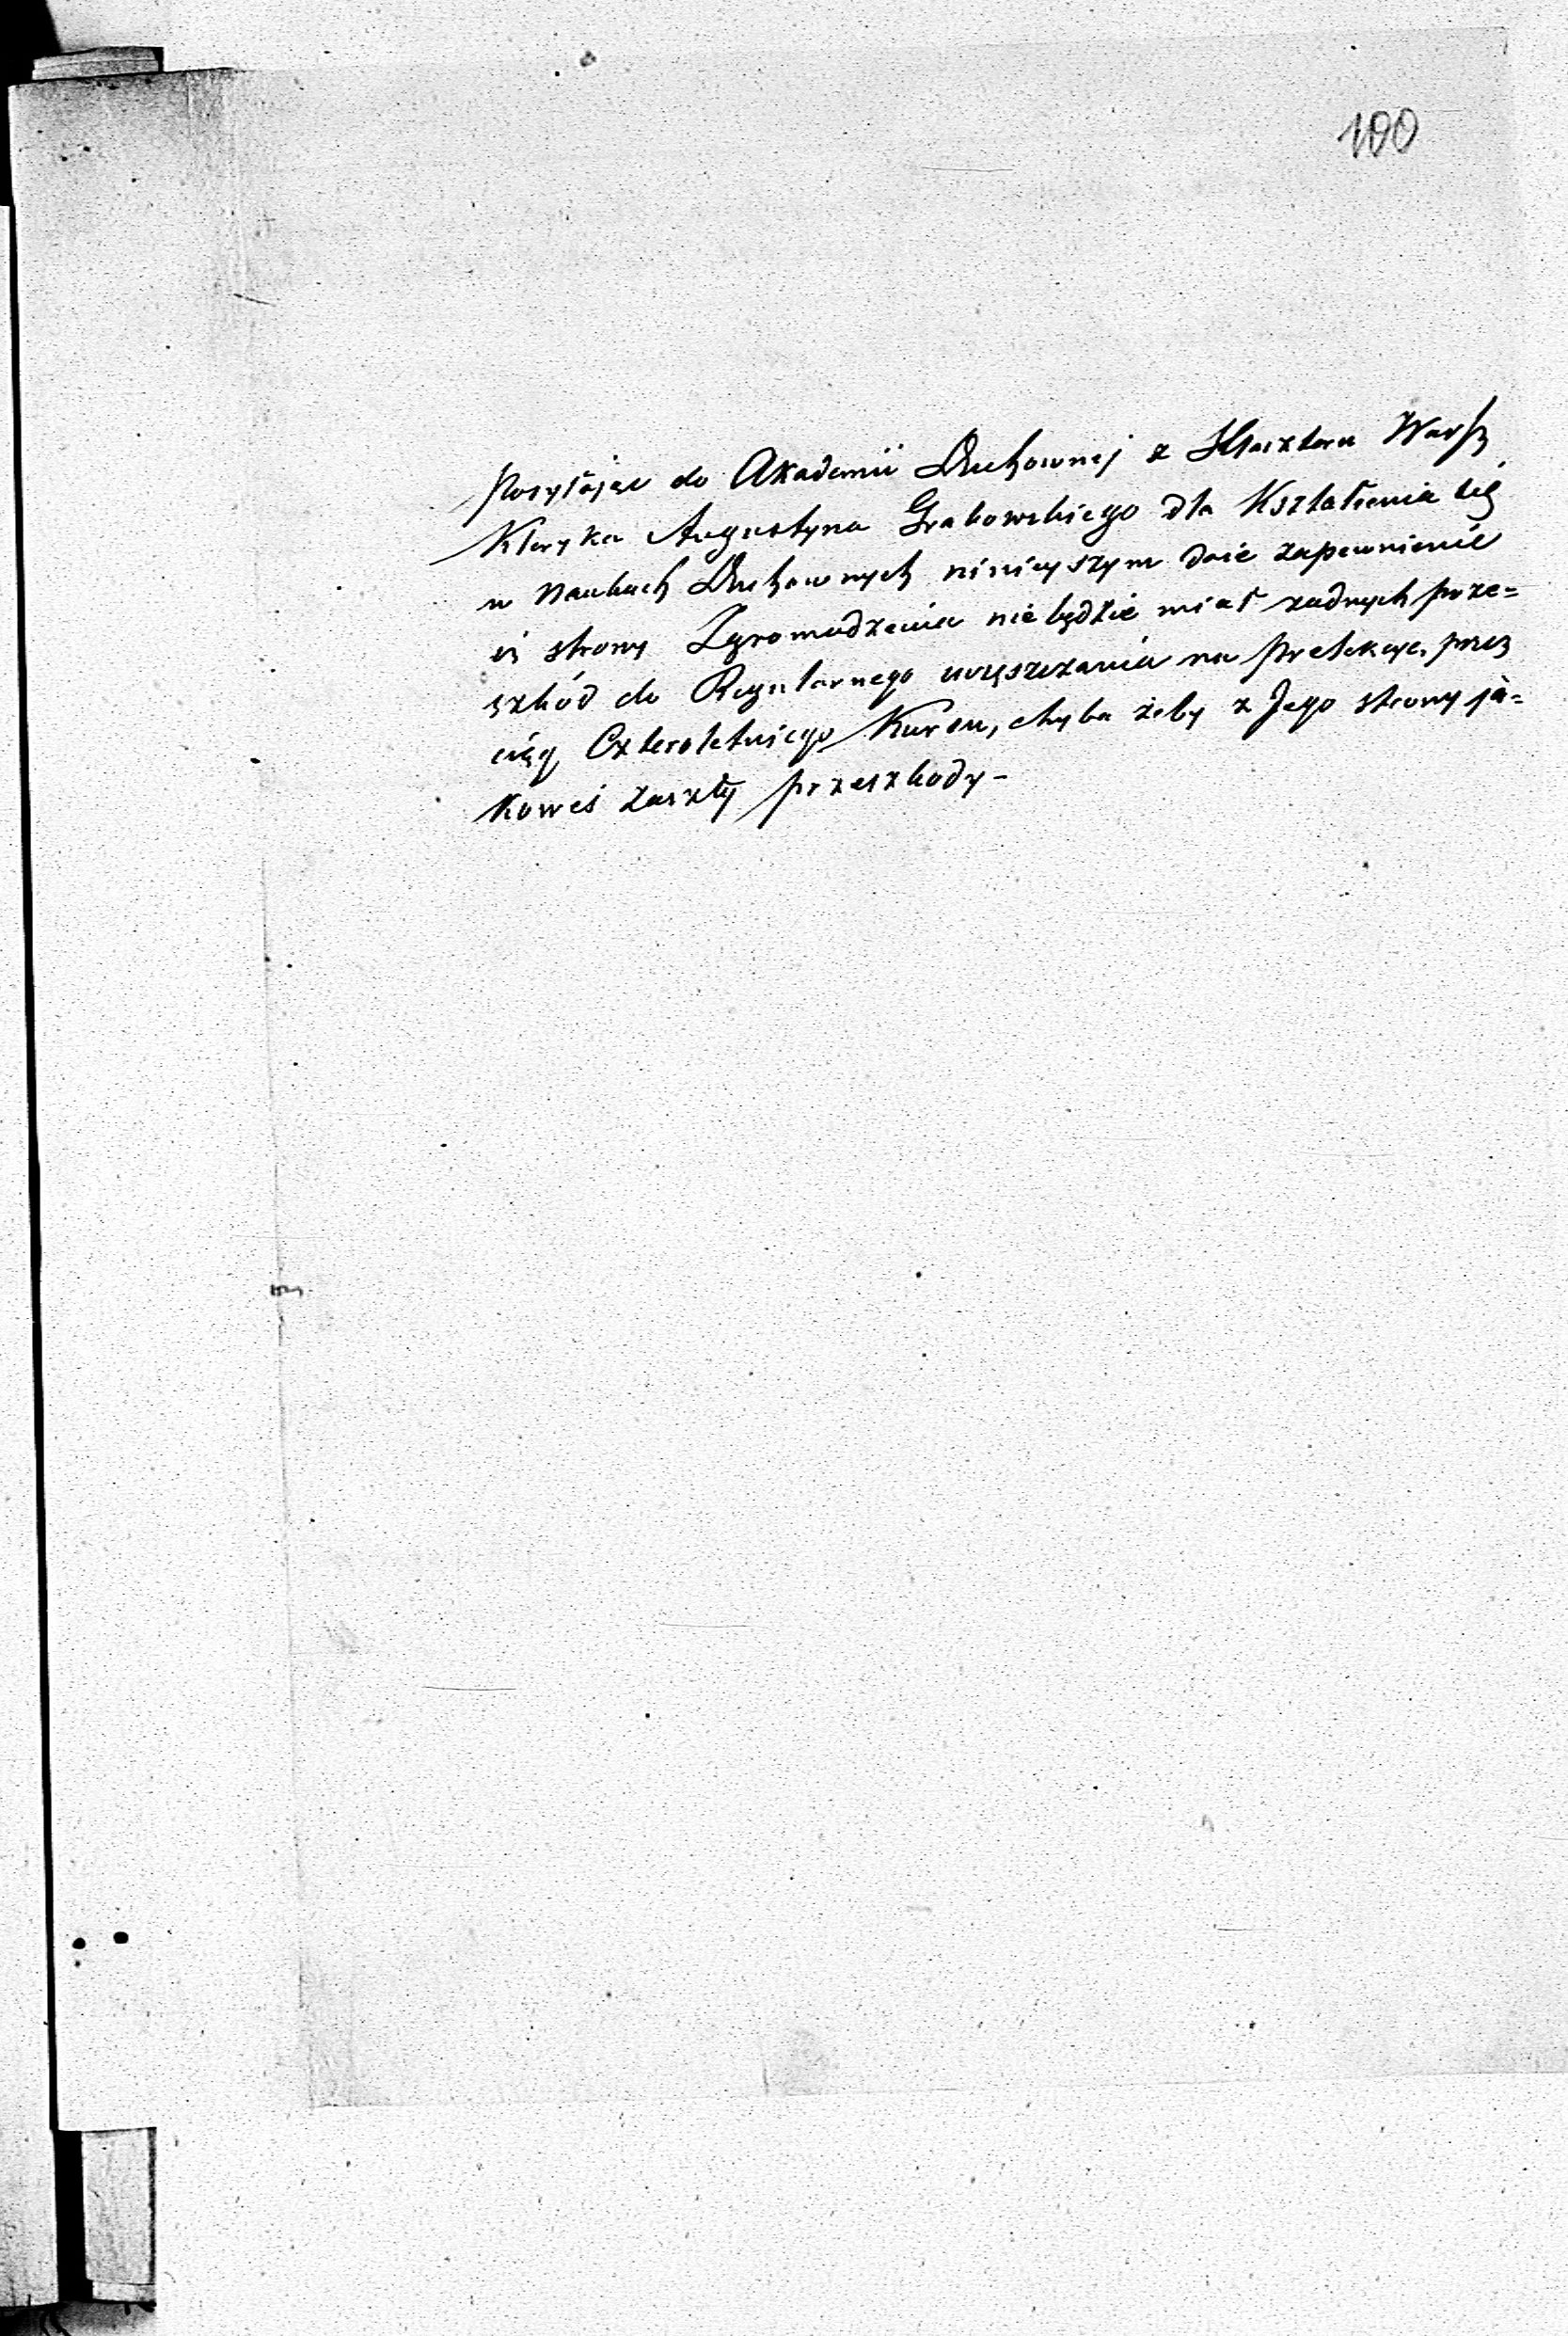 100
Posyłając do Akademii Duchownej z Klasztoru Warsz
Kleryka Augustyna Grabowskiego dla Kształcenia się
w Naukach Duchownych niniejszym daie zapewnienie
iż strony Zgromadzenia nie będzie miał żadnych prze=
szkód do Regularnego uczęszczania na prelekcye, przez
ciąg Czteroletniego Kursu, chyba żeby z Jego strony ja=
koweś zaszły przeszkody-